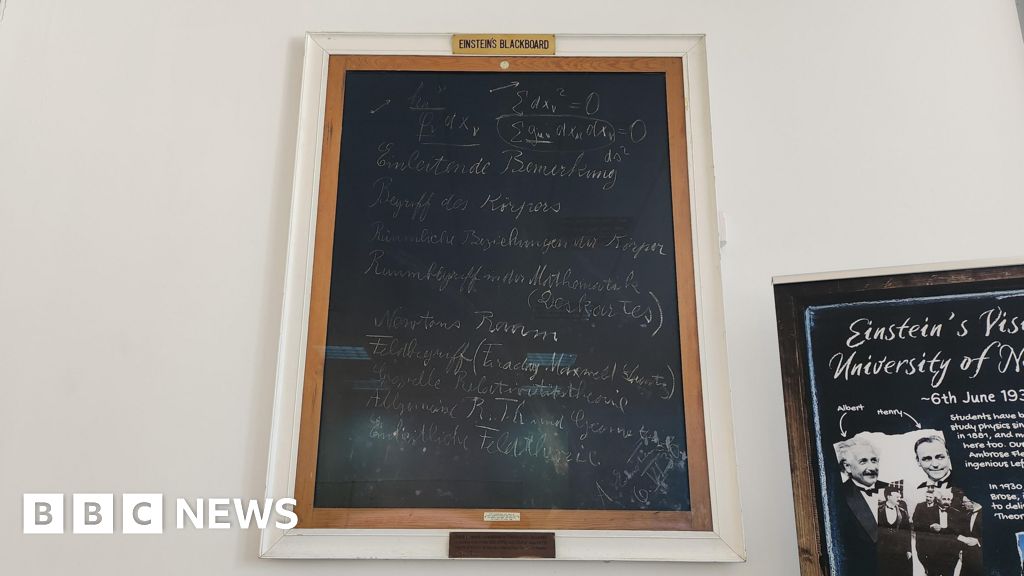 EINSTEIN'S BLACKBOARD
Σ dxᵥ² = 0
dxᵥ Σ gμν dxμ dxᵥ = 0
ds²
Einleitende Bemerkung
Begriff des Körpers
Räumliche Beziehungen der Körper
Raumbegriff in der Mathematik
(Deskartes)
Newtons Raum
Feldbegriff (Faraday Maxwell
Relativitätstheorie
Allgemeine R. Th und Geometrie
Einheitliche Feldtheorie
BBC NEWS
Einstein's Vis
University of N
~6th June 193
Albert
Henry
Students have b
study physics sin
in 1881, and m
here too. Our
Ambrose Fle
ingenious Lef
In 1930
Brose,
to deli
Theor